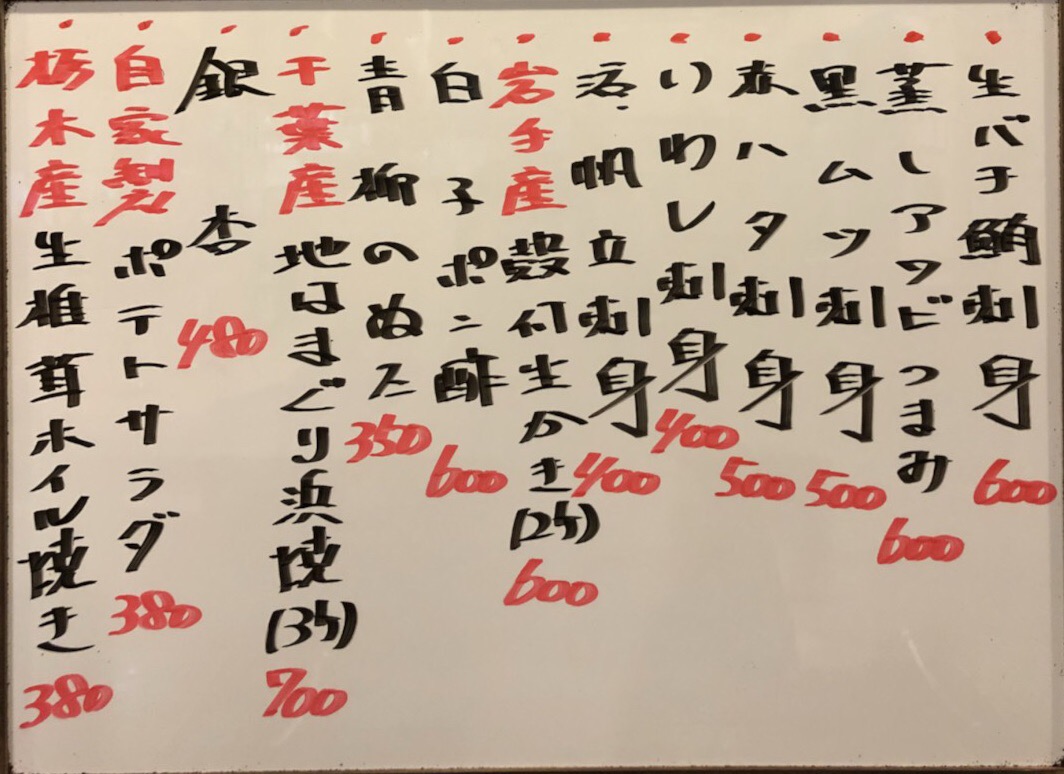 生バチ鮪刺身 600
蒸しアワビつまみ 600
黒ムツ刺身 500
赤ハタ刺身 500
いわし刺身 400
活帆立刺身 400
岩手産殻付生かき(2ケ) 600
白子ポン酢 600
青柳のぬた 350
千葉産地はまぐり浜焼(3ケ) 700
銀杏 480
自家製ポテトサラダ 380
栃木産生椎茸ホイル焼き 380